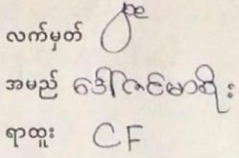 လက်မှတ်
အမည် ဒေါ်ဇင်မာဦး
ရာထူး CF